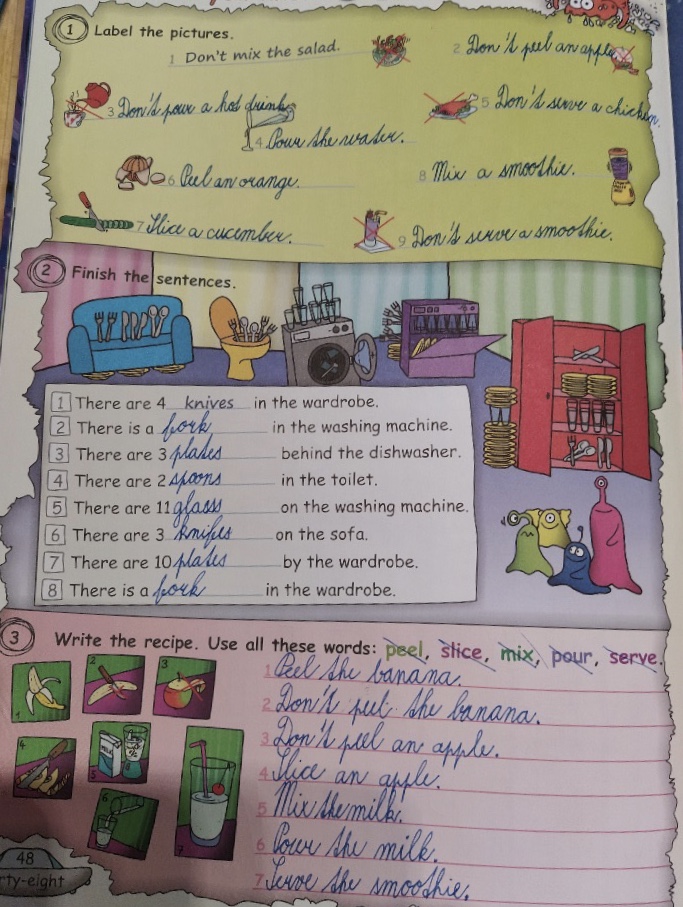 1 Label the pictures.
1 Don't mix the salad.
2 Don't peel an apple
3 Don't pour a hot drink
4 Pour the water.
5 Don't serve a chicken.
6 Peel an orange.
8 Mix a smoothie.
7 Slice a cucember.
9 Don't serve a smoothie.
2 Finish the sentences.
1 There are 4 knives in the wardrobe.
2 There is a fork in the washing machine.
3 There are 3 plates behind the dishwasher.
4 There are 2 spoons in the toilet.
5 There are 11 glass on the washing machine.
6 There are 3 knifes on the sofa.
7 There are 10 plates by the wardrobe.
8 There is a fork in the wardrobe.
3 Write the recipe. Use all these words: peel, slice, mix, pour, serve.
1 Peel the banana.
2 Don't peel the banana.
3 Don't peel an apple.
4 Slice an apple.
5 Mix the milk.
6 Pour the milk.
7 Serve the smoothie.
1
2
3
4
MILK
5
6
7
48
rty-eight